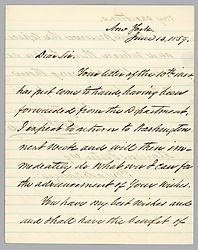 New York,
June 13, 1857.
Dear Sir,
Your letter of the 10th inst.
has just come to hand, having been
forwarded from the Department,
I expect to return to Washington
next week and will then im-
mediately do what I can for
the advancement of your wishes.
You have my best wishes and
and shall have the benefit of